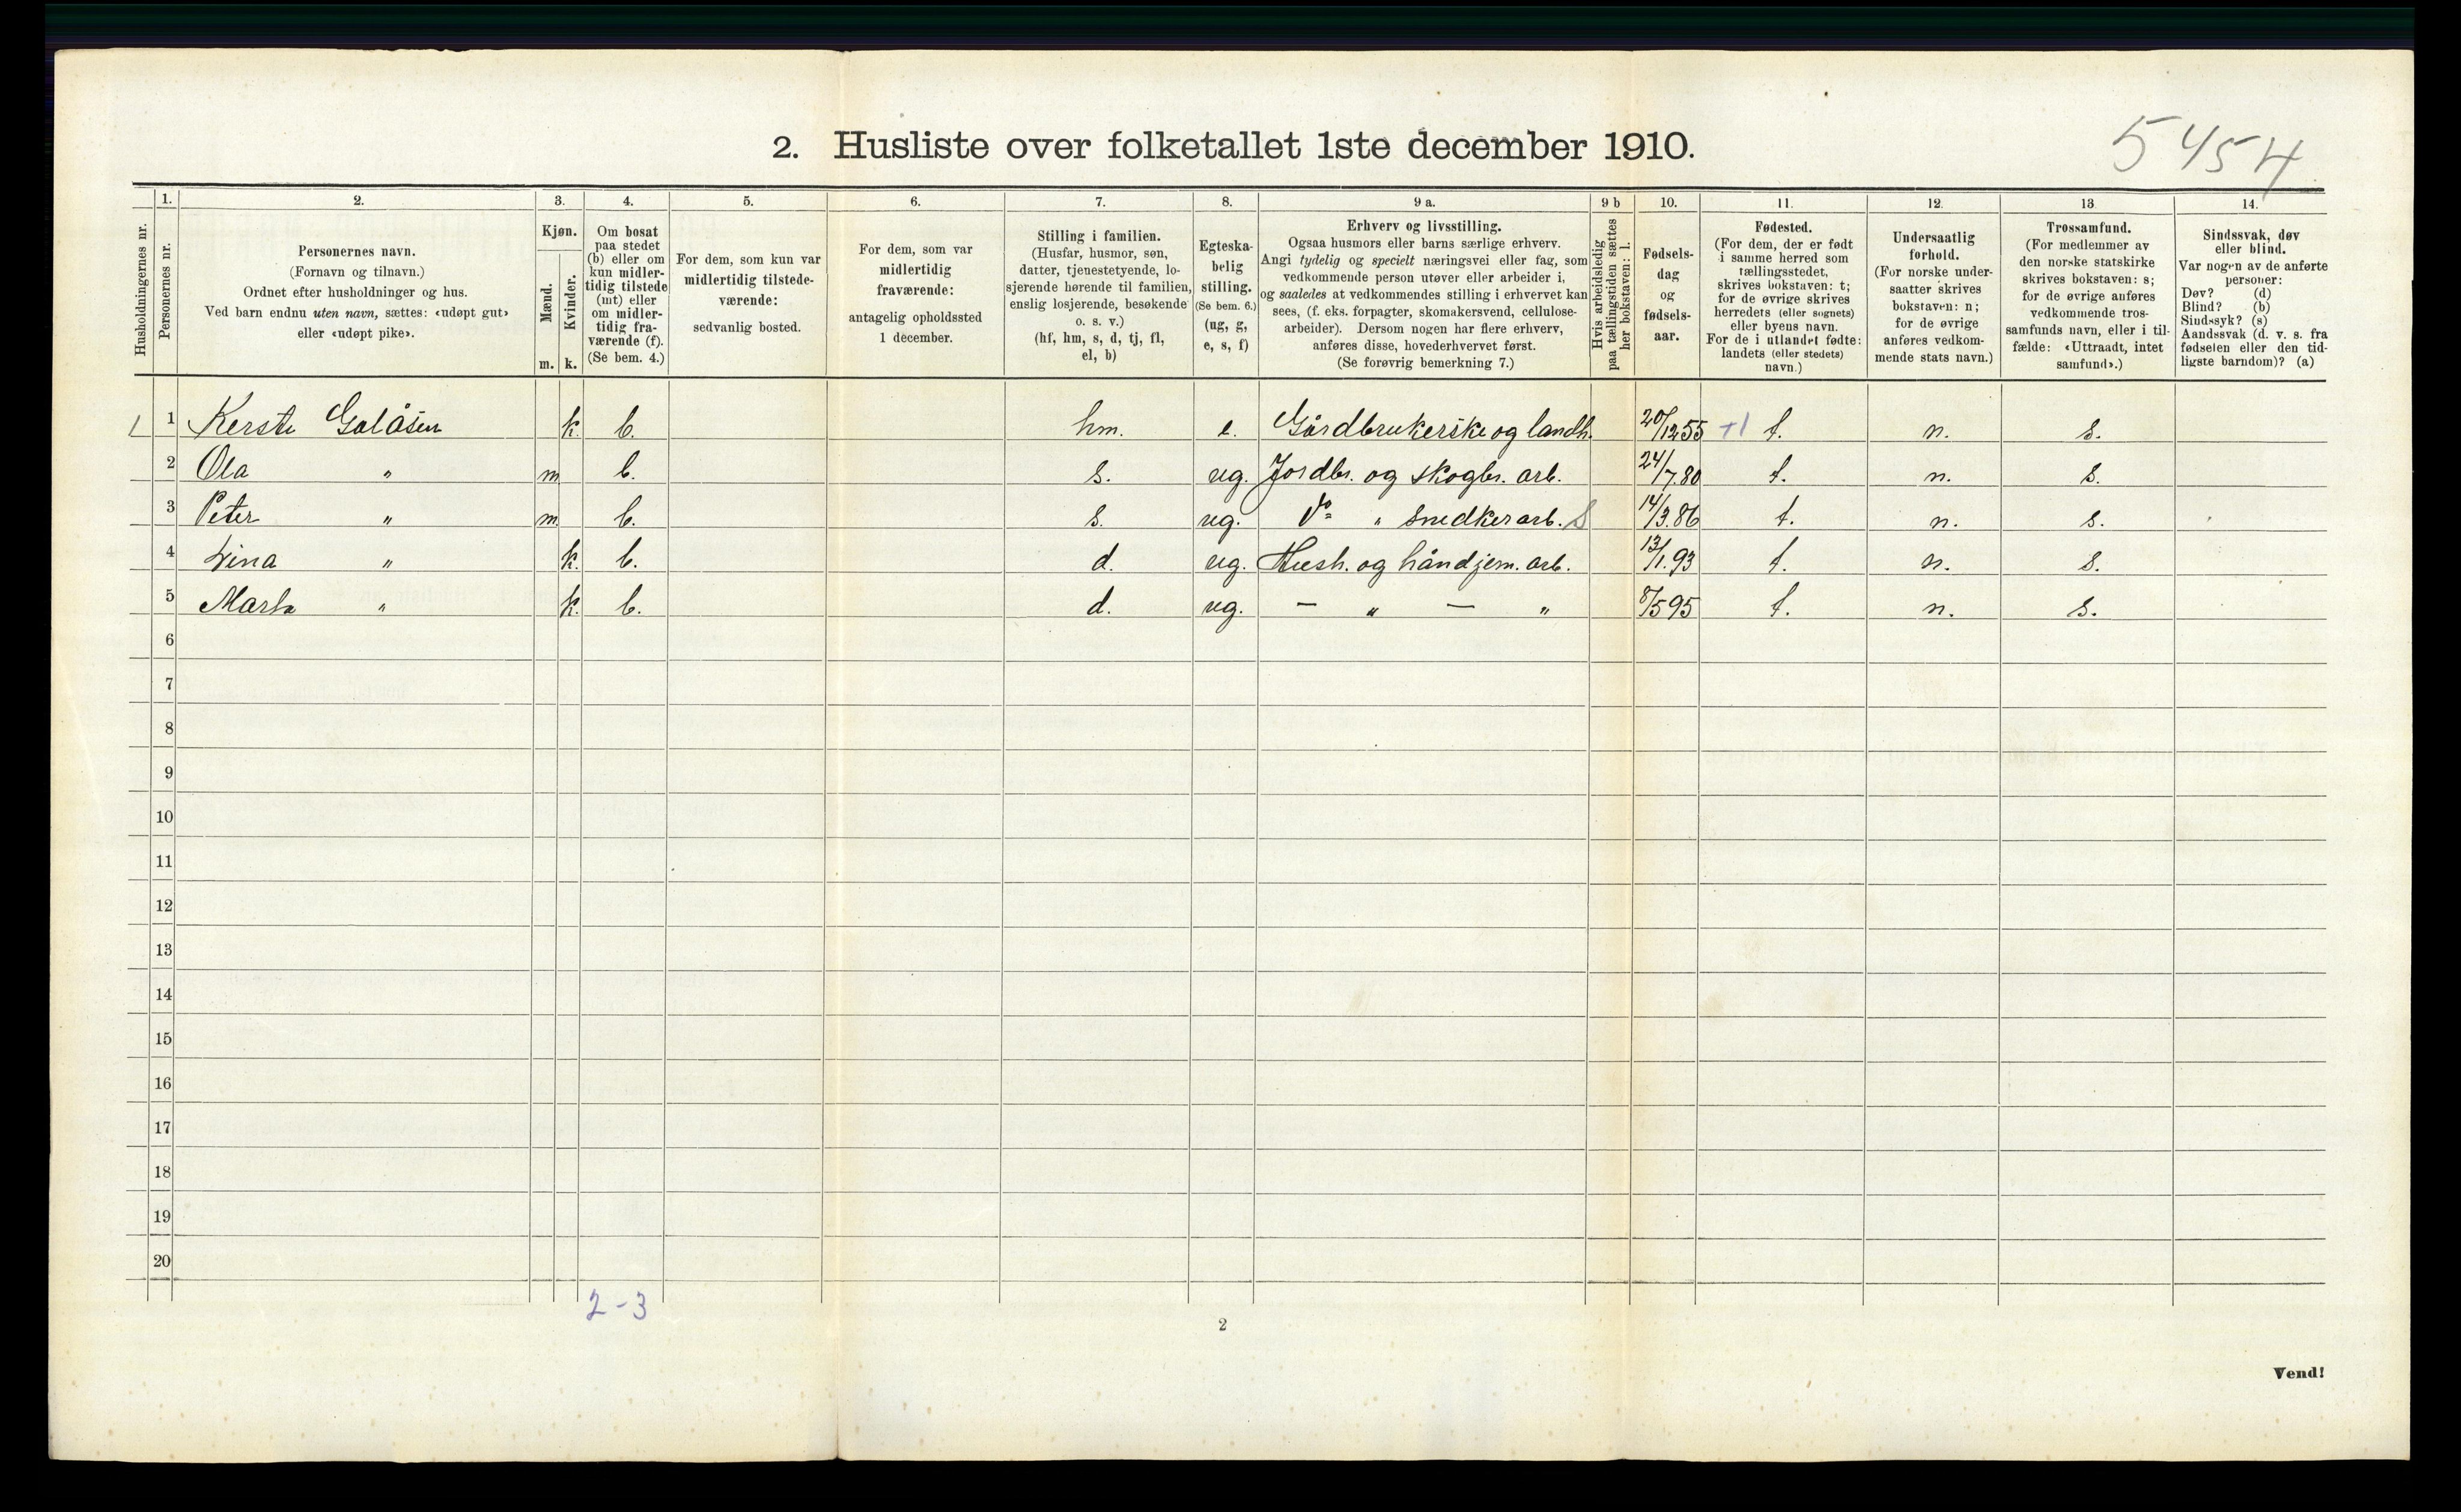 2. Husliste over folketallet 1ste december 1910.
5454
Husholdningernes nr.
1.
Personernes nr.
2.
Personernes navn.
(Fornavn og tilnavn.)
Ordnet efter husholdninger og hus.
Ved barn endnu uten navn, sættes: «udøpt gut»
eller «udøpt pike».
3.
Kjøn.
Mænd.
Kvinder.
m. k.
4.
Om bosat
paa stedet
(b) eller om
kun midler-
tidig tilstede
(mt) eller
om midler-
tidig fra-
værende (f).
(Se bem. 4.)
5.
For dem, som kun var
midlertidig tilstede-
værende:
sedvanlig bosted.
6.
For dem, som var
midlertidig
fraværende:
antagelig opholdssted
1 december.
7.
Stilling i familien.
(Husfar, husmor, søn,
datter, tjenestetyende, lo-
sjerende hørende til familien,
enslig losjerende, besøkende
o. s. v.)
(hf, hm, s, d, tj, fl,
el, b)
8.
Egteska-
belig
stilling.
(Se bem. 6.)
(ug, g,
e, s, f)
9 a.
Erhverv og livsstilling.
Ogsaa husmors eller barns særlige erhverv.
Angi tydelig og specielt næringsvei eller fag, som
vedkommende person utøver eller arbeider i,
og saaledes at vedkommendes stilling i erhvervet kan
sees, (f. eks. forpagter, skomakersvend, cellulose-
arbeider). Dersom nogen har flere erhverv,
anføres disse, hovederhvervet først.
(Se forøvrig bemerkning 7.)
9 b
Hvis arbeidsledig
paa tællingstiden sættes
her bokstaven: l.
10.
Fødsels-
dag
og
fødsels-
aar.
11.
Fødested.
(For dem, der er født
i samme herred som
tællingsstedet,
skrives bokstaven: t;
for de øvrige skrives
herredets (eller sognets)
eller byens navn.
For de i utlandet fødte:
landets (eller stedets)
navn.)
12.
Undersaatlig
forhold.
(For norske under-
saatter skrives
bokstaven: n;
for de øvrige
anføres vedkom-
mende stats navn.)
13
Trossamfund.
(For medlemmer av
den norske statskirke
skrives bokstaven: s;
for de øvrige anføres
vedkommende tros-
samfunds navn, eller i til-
fælde: «Uttraadt, intet
samfund».)
14.
Sindssvak, døv
eller blind.
Var nogen av de anførte
personer:
Døv? (d)
Blind? (b)
Sindssyk? (s)
Aandssvak (d. v. s. fra
fødselen eller den tid-
ligste barndom)? (a)
1 1 Kersti Galåsen k. b. hm. e. Gårdbrukerske og landh. 20/12 55 +1 t. n. s.
2 Ola " m b. s. ug. Jordbr. og skogbr. arb. 24/7.80 t. n. s.
3 Peter " m. b. s. ug. do " snedkerarb. S 14/3.86 t. n. s.
4 Lina " k. b. d. ug. Hush. og håndjern. arb. 13/1.93 t. n. s.
5 Marta " k. b. d. ug. — " — " 8/5 95 t. n. s.
6
7
8
9
10
11
12
13
14
15
16
17
18
19
20
2-3
2
Vend!